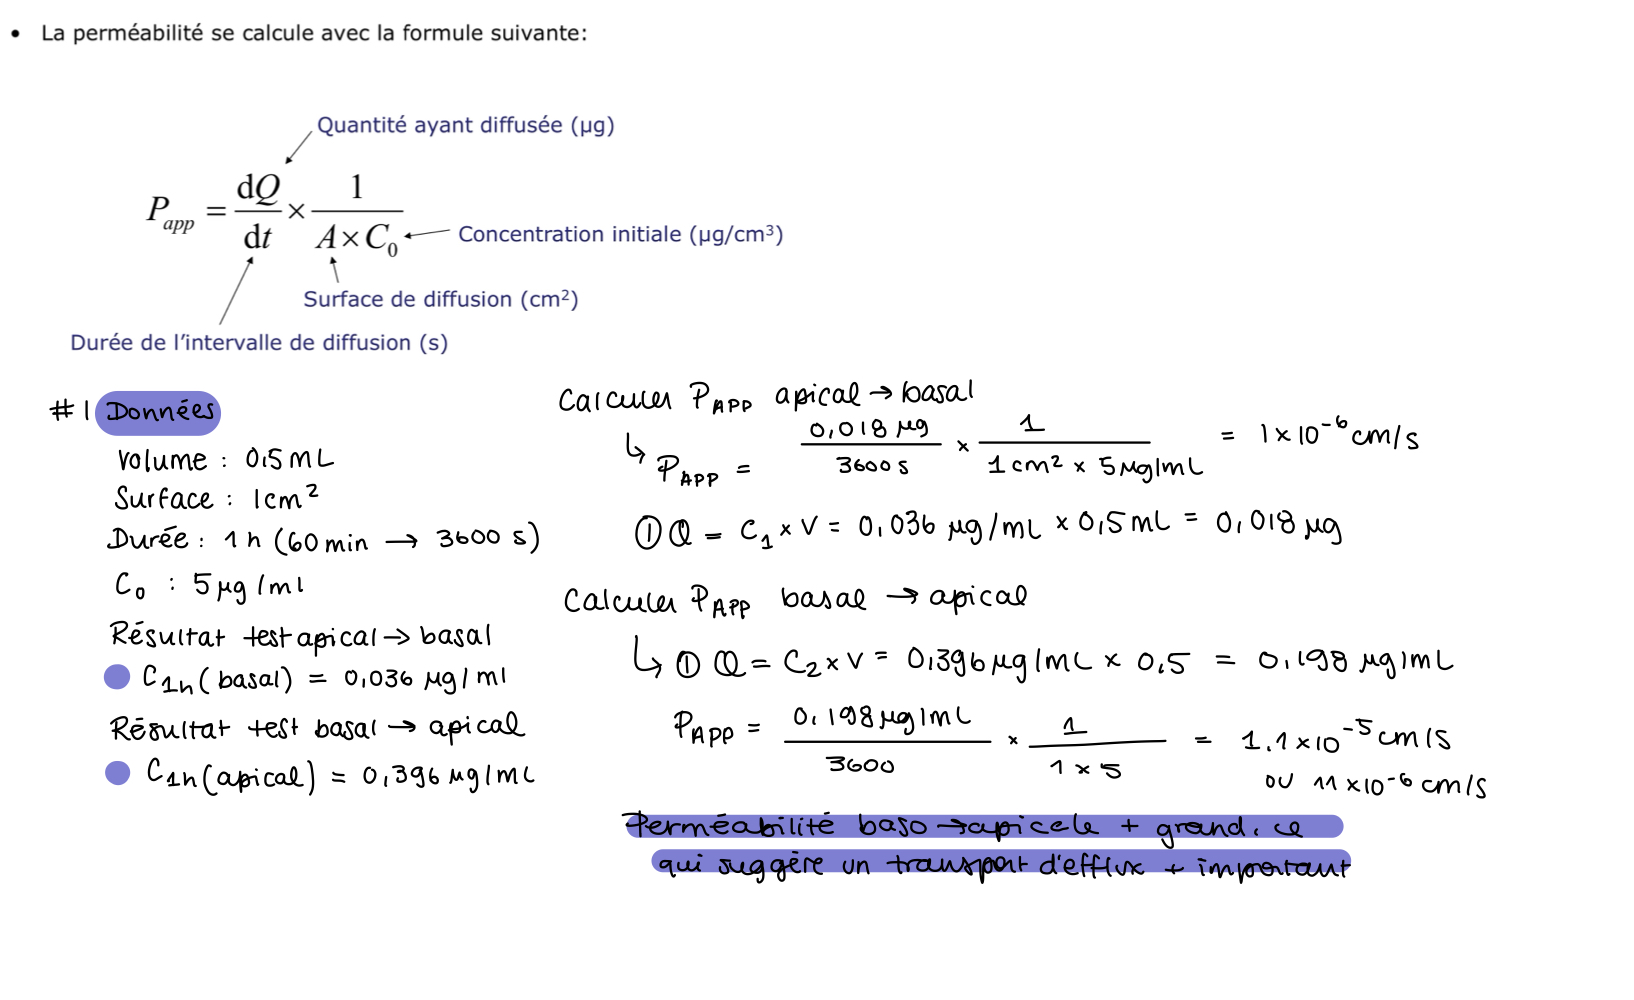 • La perméabilité se calcule avec la formule suivante:
Quantité ayant diffusée (µg)
P_app = dQ/dt × 1/(A × C₀)
Concentration initiale (µg/cm³)
Surface de diffusion (cm²)
Durée de l'intervalle de diffusion (s)
#1 Données
Volume : 0,5 mL
Surface : 1cm²
Durée : 1h (60 min → 3600 s)
C₀ : 5 µg/ml
Résultat test apical → basal
C₁ₕ (basal) = 0,036 µg/ml
Résultat test basal → apical
C₁ₕ (apical) = 0,396 µg/mL
Calculer P_APP apical → basal
↳ P_APP = 0,018 µg / 3600 s × 1 / (1 cm² × 5 µg/mL) = 1 × 10⁻⁶ cm/s
① Q = C₁ × V = 0,036 µg/mL × 0,5 mL = 0,018 µg
Calculer P_APP basal → apical
↳ ① Q = C₂ × V = 0,396 µg/mL × 0,5 = 0,198 µg/mL
P_APP = 0,198 µg/mL / 3600 × 1 / (1 × 5) = 1.1 × 10⁻⁵ cm/s
ou 11 × 10⁻⁶ cm/s
Perméabilité baso → apicale + grand, ce
qui suggère un transport d'efflux + important